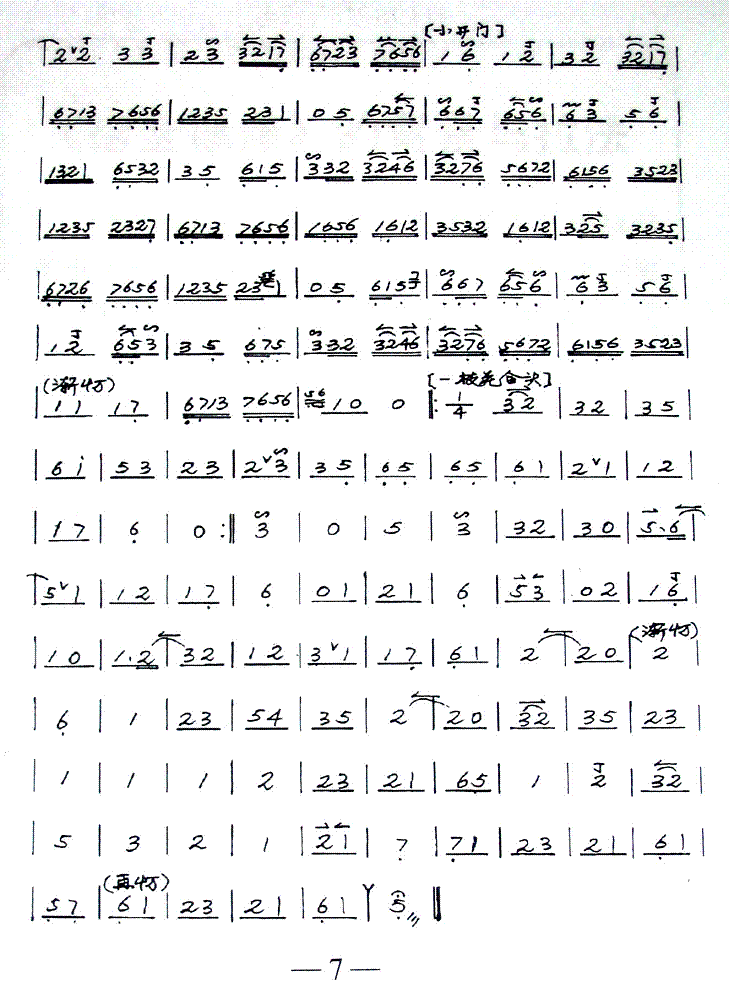 [小开门]
2ᵛ2 3 3 | 2 3 3217 | 6723 7656 | 1 6 1 2 | 3 2 3217 |
| 6713 7656 | 1235 231 | 0 5 6757 | 667 656 | 6 3 5 6 |
| 1321 6532 | 3 5 615 | 332 3246 | 3276 5672 | 6156 3523 |
| 1235 2327 | 6713 7656 | 1656 1612 | 3532 1612 | 325 3235 |
| 6726 7656 | 1235 231 | 0 5 615 | 667 656 | 6 3 5 6 |
| 1 2 653 | 3 5 675 | 332 3246 | 3276 5672 | 6156 3523 |
(渐切) [一板羌合头]
| 11 17 | 6713 7656 | 56 10 0 ‖: 1/4 32 | 32 | 35 |
| 6i | 53 | 23 | 2ᵛ3 | 35 | 65 | 65 | 61 | 2ᵛ1 | 12 |
| 17 | 6 | 0 :‖ 3 | 0 | 5 | 3 | 32 | 30 | 5.6 |
5ᵛ1 | 12 | 17 | 6 | 01 | 21 | 6 | 53 | 02 | 16 |
(渐切)
| 10 | 1.2 | 32 | 12 | 3ᵛ1 | 17 | 61 | 2 | 20 | 2 |
| 6 | 1 | 23 | 54 | 35 | 2 | 20 | 32 | 35 | 23 |
| 1 | 1 | 1 | 2 | 23 | 21 | 65 | 1 | 2 | 32 |
| 5 | 3 | 2 | 1 | 21 | 7 | 71 | 23 | 21 | 61 |
(再切)
| 57 | 61 | 23 | 21 | 61 | 5 ‖
— 7 —